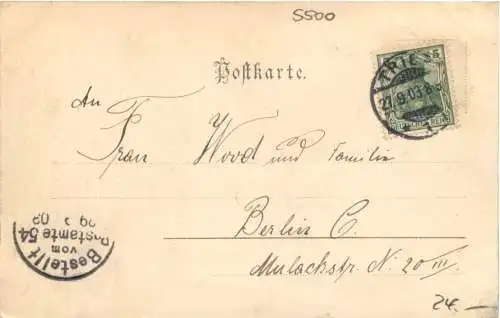 S500
TRIER
27.9.03 8-9
5
Postkarte.
An
Frau Wood und Familie
Berlin C.
Mulackstr. N. 20 III.
Bestellt
vom
Postamte 54
29 03
24.—